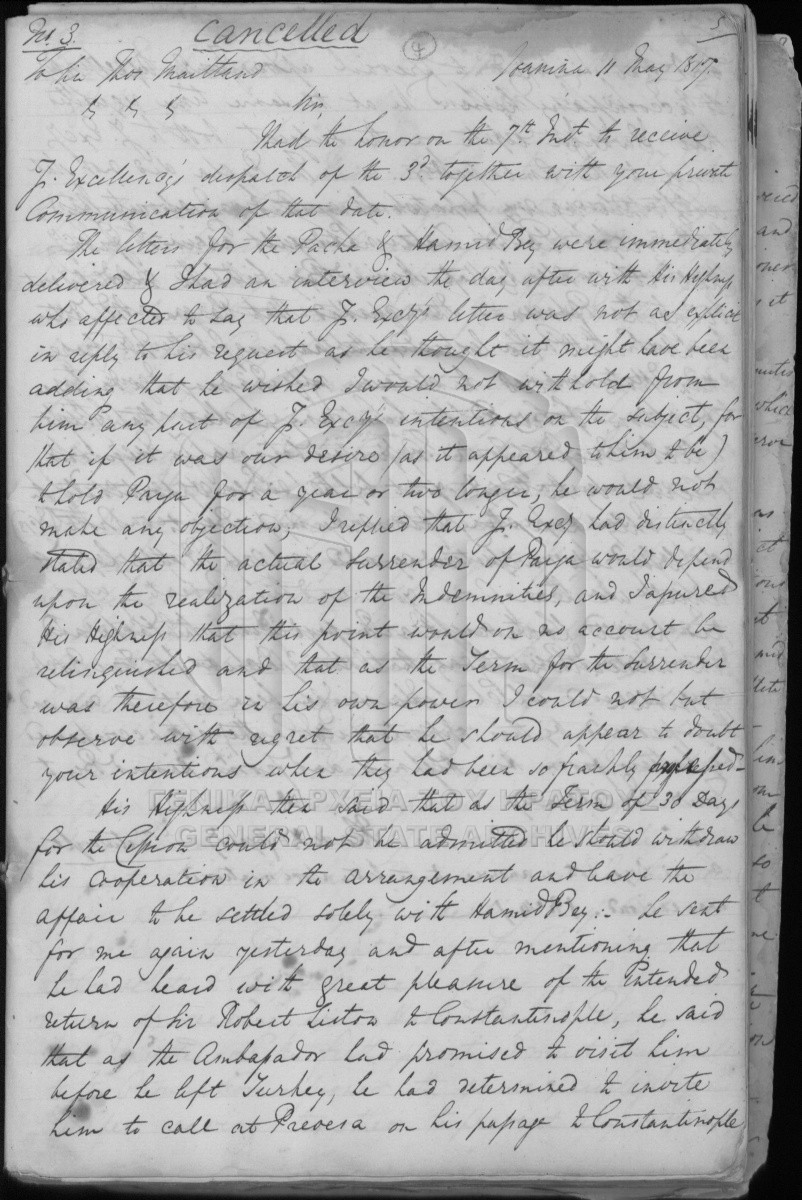 No. 3. Cancelled 5
4
To Sir Thos Maitland Joanina 11 May 1817.
& & & Sir,
I had the honor on the 7th Inst. to receive
Y. Excellency's despatch of the 3d. together with your private
Communication of that date.
The letters for the Pacha & Hamid Bey were immediately
delivered & I had an interview the day after with His Highness
who affected to say that Y. Excy's letter was not as explicit
in reply to his request as he thought it might have been
adding that he wished I would not withhold from
him any part of Y. Excy's intentions on the subject, for
that if it was our desire (as it appeared to him to be)
to hold Parga for a year or two longer, he would not
make any objection; I replied that Y. Excy had distinctly
stated that the actual surrender of Parga would depend
upon the realization of the Indemnities, and I assured
His Highness that this point would on no account be
relinquished and that as the Term for the surrender
was therefore in his own power I could not but
observe with regret that he should appear to doubt
your intentions when they had been so frankly
His Highness then said that as the Term of 30 Days
for the Cession could not be admitted he should withdraw
his cooperation in the arrangement and leave the
affair to be settled solely with Hamid Bey:- he sent
for me again yesterday and after mentioning that
he had heard with great pleasure of the Intended
return of Sir Robert Liston to Constantinople, he said
that as the Ambassador had promised to visit him
before he left Turkey, he had determined to invite
him to call at Prevesa on his passage to Constantinople
ΓΕΝΙΚΑ ΑΡΧΕΙΑ ΤΟΥ ΚΡΑΤΟΥΣ
GENERAL STATE ARCHIVES